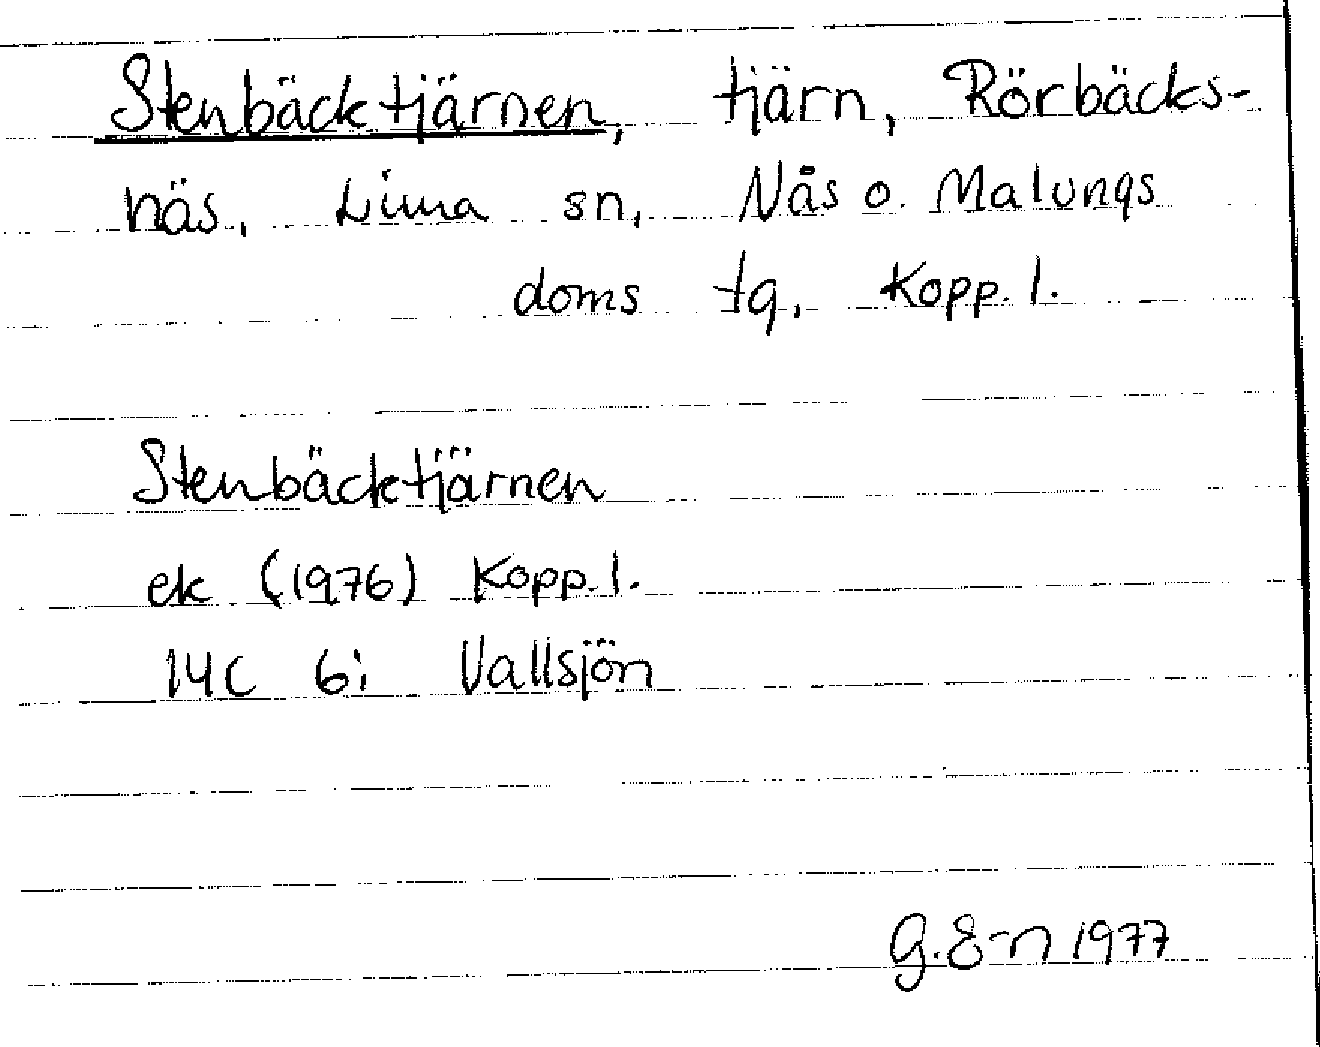 Stenbäcktjärnen, tjärn, Rörbäcks-
näs, Lima sn, Nås o. Malungs
doms tg, Kopp. l.
Stenbäcktjärnen
ek (1976) Kopp. l.
14C 6i Vallsjön
G. E-n 1977